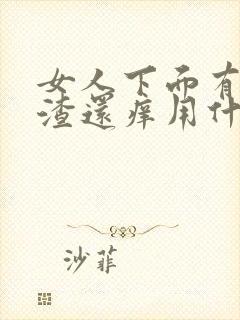 女人下面有
渣還痒用什
沙菲